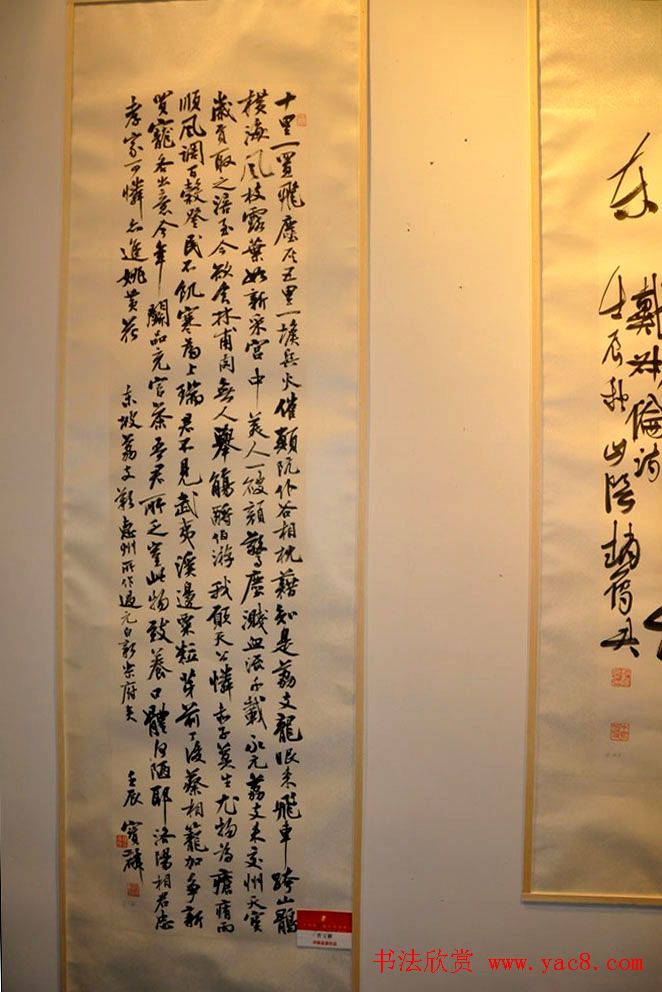 十里一置飛塵灰五里一堠兵火催顛阬仆谷相枕藉知是荔支龍眼來飛車跨山鶻
橫海風枝露葉如新采宮中美人一破顏驚塵濺血流千載永元荔支來交州天寶
歲貢取之涪至今欲食林甫肉無人舉觴酹伯游我願天公憐赤子莫生尤物為瘡痏雨
順風調百穀登民不飢寒為上瑞君不見武夷溪邊粟粒芽前丁後蔡相籠加爭新
買寵各出意今年鬬品充官茶吾君所乏豈此物致養口體何陋耶洛陽相君忠
孝家可憐亦進姚黃花 東坡荔支歎惠州所作過元白新樂府矣 壬辰 寶麟
戴叔倫詩
壬辰秋山陰趙雁君
书法欣赏 www.yac8.com